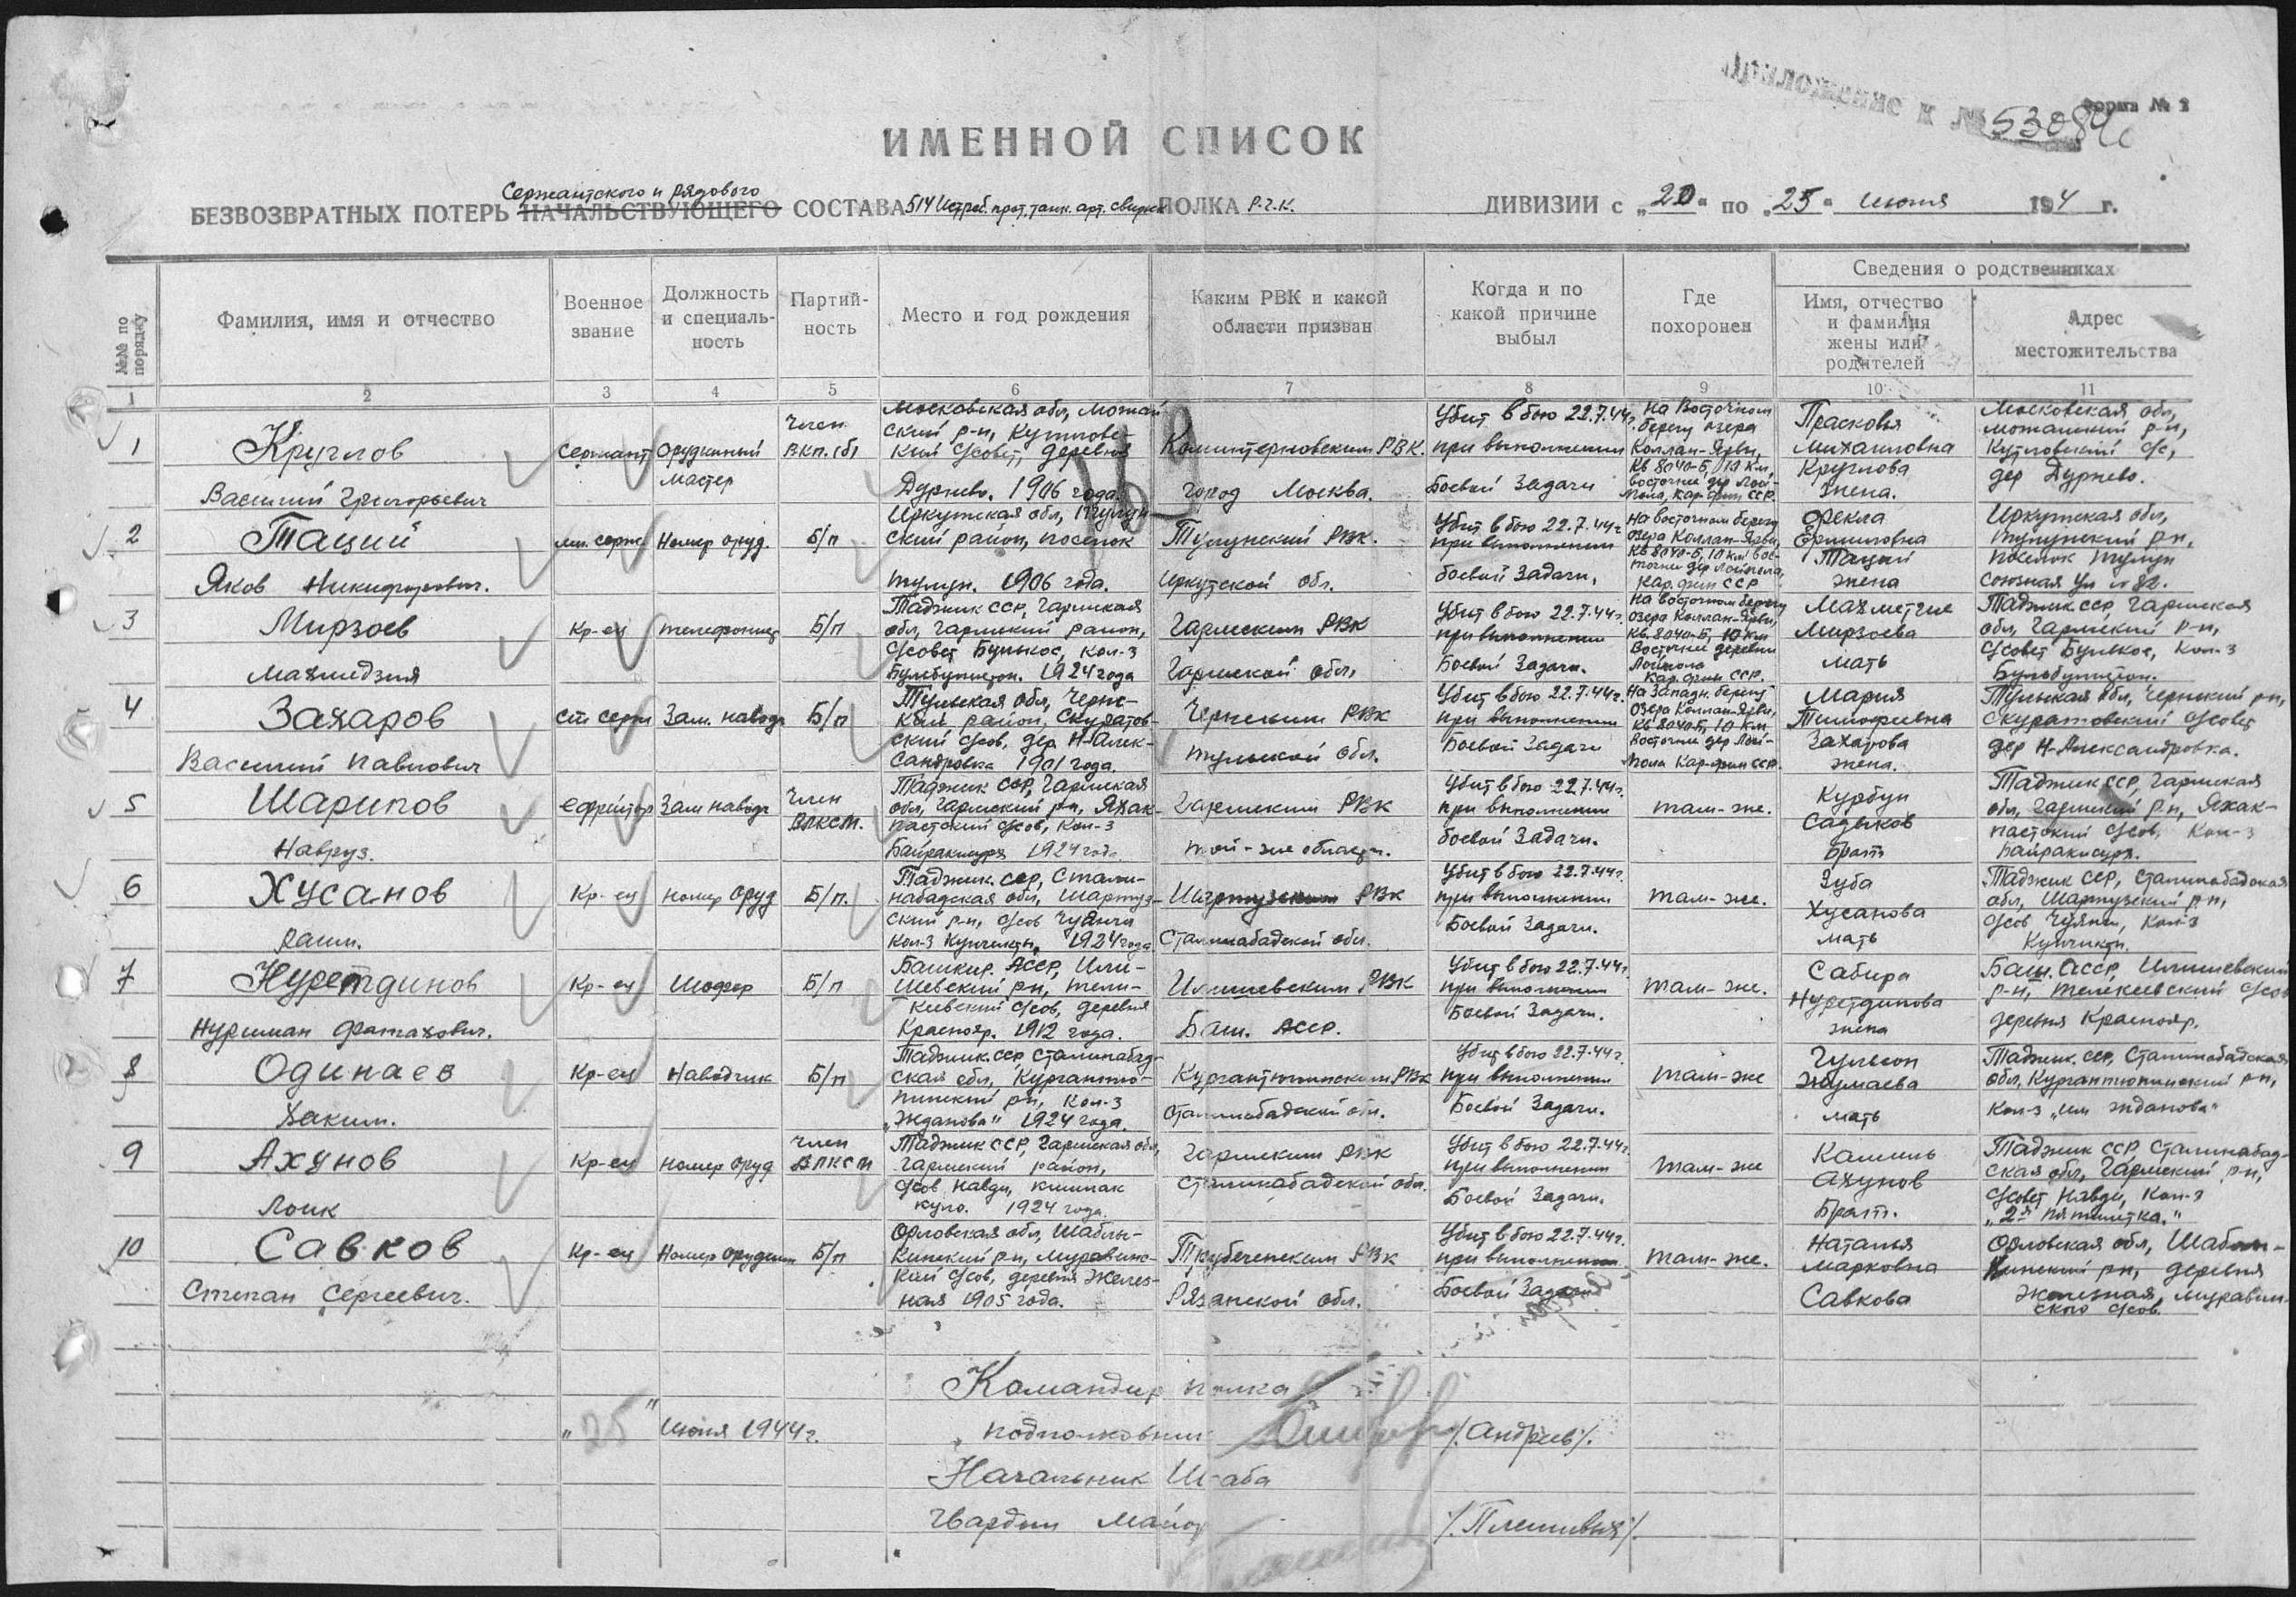 Приложение к № 53084с
Форма № 2
ИМЕННОЙ СПИСОК
Сержантского и рядового
БЕЗВОЗВРАТНЫХ ПОТЕРЬ НАЧАЛЬСТВУЮЩЕГО СОСТАВА 514 Истреб. прот. танк. арт. свирск ПОЛКА Р.Г.К. ДИВИЗИИ с „20" по „25" июля 194 4 г.
№№ по порядку
Фамилия, имя и отчество
Военное звание
Должность и специаль-ность
Партий-ность
Место и год рождения
Каким РВК и какой области призван
Когда и по какой причине выбыл
Где похоронен
Сведения о родственниках
Имя, отчество и фамилия жены или родителей
Адрес местожительства
1 2 3 4 5 6 7 8 9 10 11
1
Круглов
Василий Григорьевич
Сержант
Орудийный
мастер
Член
ВКП.(б)
Московская обл, Можай
ский р-н,
кий с/совет, деревня
Дурнево. 1906 года.
Коминтерновским РВК.
город Москва.
Убит в бою 22.7.44г.
при выполнении
Боевой Задачи
На Восточном
берегу озера
Коллан-Ярви,
Кв 8040-Б, 10 км,
восточнее дер Лой-
мола, Кар. фин ССР.
Прасковья
Михайловна
Круглова
жена.
Московская обл,
Можайский р-н,
с/с,
дер Дурнево.
2
Таций
Яков Никифорович.
мл. серж.
Номер оруд.
Б/п
Иркутская обл, Тулун-
ский район, поселок
тулун. 1906 года.
Тулунский РВК.
Иркутской обл.
Убит в бою 22.7.44г
при выполнении
боевой Задачи.
На восточном берегу
Озера Коллан-Ярви,
Кв 8040-Б, 10 км вос-
точнее дер Лоймола,
Кар. фин ССР
Фекла
Ермиловна
Таций
жена
Иркутская обл,
Тулунский р-н,
поселок тулун
союзная ул № 82.
3
Мирзоев
Махмедзия
Кр-ец
телефонист
Б/п
Таджик ССР, Гармская
обл, Гармский район,
с/совет Булькос, кол-з
1924 года
Гармским РВК
Гармской обл,
Убит в бою 22.7.44г.
при выполнении
Боевой Задачи.
На восточном берегу
Озера Коллан-Ярви,
Кв. 8040-Б, 10 км
Восточнее деревни
Лоймола
Кар. фин ССР.
Мирзоева
мать
Таджик ССР, Гармская
обл, Гармский р-н,
с/совет Булькос, кол-з
4
Захаров
Василий Павлович
ст серж
Зам. наводч
Б/п
Тульская обл, Черн-
кий район, Скуратов-
ский с/сов, дер Н-Алек-
сандровка 1901 года.
Черньским РВК
Тульской обл.
Убит в бою 22.7.44г.
при выполнении
Боевой Задачи
На Западн. берегу
Озера Коллан-Ярви,
Кв 8040-Б, 10 км
Восточнее дер Лой-
мола Кар-фин ССР.
Мария
Тимофеевна
Захарова
жена.
Тульская обл, Чернский рн,
Скуратовский с/совет
дер Н-Александровка.
5
Шарипов
Навруз.
ефрейтор
Зам наводч
Член
ВЛКСМ.
Таджик ССР, Гармская
обл, Гармский рн, Яхак-
пастский с/сов, Кол-з
1924 года.
Гармским РВК
той-же области.
Убит в бою 22.7.44г.
при выполнении
боевой Задачи.
там-же.
Курбун
Садыков
Брат
Таджик ССР, Гармская
обл, Гармский р-н, Яхак-
пастский с/сов, Кол-з
6
Хусанов
Раим.
Кр-ец
номер оруд
Б/п.
Таджик. ССР, Стали-
набадская обл, Шартуз-
ский р-н, с/сов Чуянчи
1924 года
Шартузским РВК
Сталинабадской обл.
Убит в бою 22.7.44г.
при выполнении
Боевой Задачи.
там-же.
Зуба
Хусанова
мать
Таджик ССР, Сталинабадская
обл, Шартузский р-н,
7
Нуретдинов
Нуриман Фатахович.
Кр-ец
Шофер
Б/п
Башкир. АССР, Или-
шевский рн, Теле-
кеевский с/сов, деревня
Краснояр. 1912 года.
Илишевским РВК
Баш. АССР.
Убит в бою 22.7.44г.
при выполнении
Боевой Задачи.
там-же.
Сабира
Нуретдинова
жена
Баш. АССР, Илишевский
р-н, Телекеевский с/сов
деревня Краснояр.
8
Одинаев
Хаким.
Кр-ец
Наводчик
Б/п
Таджик. ССР Сталинабад-
ская обл, Кургантю-
пинский рн, кол-з
„Жданова" 1924 года.
Кургантюпинским РВК
Сталинабадской обл.
Убит в бою 22.7.44г.
при выполнении
Боевой Задачи.
там-же
Гульсон
Жумаева
мать
Таджик. ССР, Сталинабадская
обл, Кургантюпинский рн,
кол-з „им Жданова"
9
Ахунов
Лоик
Кр-ец
номер оруд
Член
ВЛКСМ
Таджик ССР, Гармская обл,
Гармский район,
с/сов Навди, кишлак
1924 года.
Гармским РВК
Сталинабадской обл.
Убит в бою 22.7.44г.
при выполнении
Боевой Задачи.
там-же
Камиль
Ахунов
Брат.
Таджик ССР, Сталинабад-
ская обл, Гармский р-н,
с/совет Навди, кол-з
„2я пятилетка."
10
Савков
Степан Сергеевич.
Кр-ец
Номер орудия
Б/п
Орловская обл, Шаблы-
кинский р-н, Муравлис-
кий с/сов, деревня Желез-
ная 1905 года.
РВК
Рязанской обл.
Убит в бою 22.7.44г.
при выполнении
Боевой Задачи
там-же.
Наталья
Марковна
Савкова
Орловская обл, Шаблы-
кинский рн, деревня
Железная,
ского с/сов.
Командир полка
подполковник /.Андреев/.
„25" июля 1944г.
Начальник Штаба
Гвардии Майор